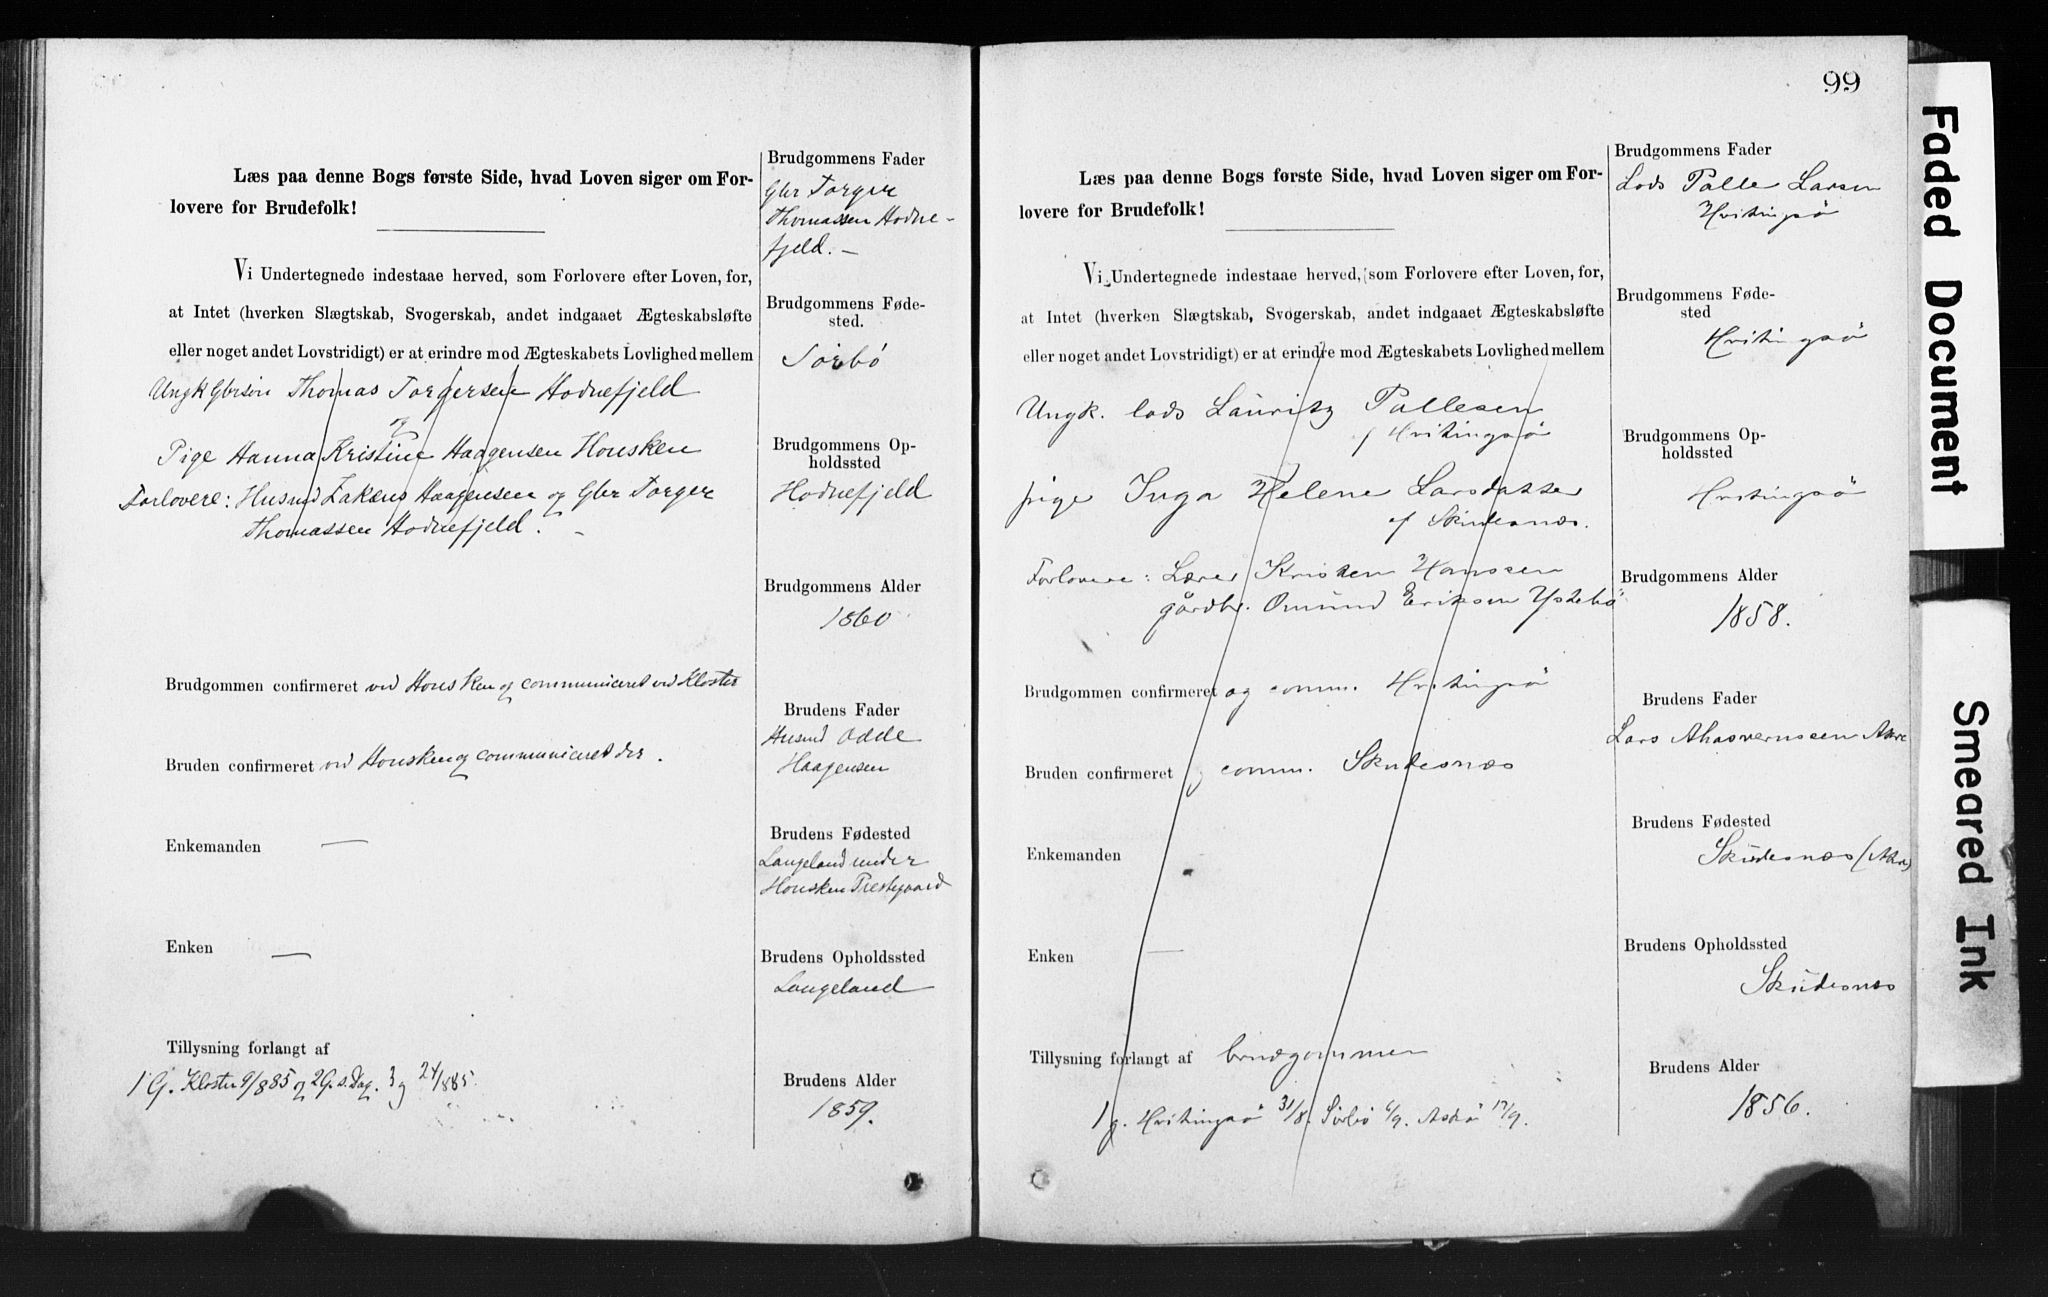 Læs paa denne Bogs første Side, hvad Loven siger om For-
lovere for Brudefolk!
Vi Undertegnede indestaae herved, som Forlovere efter Loven, for,
at Intet (hverken Slægtskab, Svogerskab, andet indgaaet Ægteskabsløfte
eller noget andet Lovstridigt) er at erindre mod Ægteskabets Lovlighed mellem
Ungk Gbrsøn Thomas Torgersen Hodnefjeld
og
Pige Hanna Kristine Haagensen Housken
Forlovere: Husmd Zakens Haagensen og Gbr Torger
Thomassen Hodnefjeld. -
Brudgommen confirmeret ved Housken og communiceret ved Kloster
Bruden confirmeret ved Housken og communiceret der.
Enkemanden —
Enken —
Tillysning forlangt af
1 G. Kloster 9/885 og 2 G. s. Dag. 3 g 24/885.
Brudgommens Fader
Gbr Torger
Thomassen Hodne-
fjeld. —
Brudgommens Føde-
sted.
Sørbø
Brudgommens Op-
holdssted
Hodnefjeld
Brudgommens Alder
1860
Brudens Fader
Husmd Odde
Haagensen
Brudens Fødested
Langeland under
Housken Prestegaard
Brudens Opholdssted
Langeland
Brudens Alder
1859.
99
Læs paa denne Bogs første Side, hvad Loven siger om For-
lovere for Brudefolk!
Vi Undertegnede indestaae herved, som Forlovere efter Loven, for,
at Intet (hverken Slægtskab, Svogerskab, andet indgaaet Ægteskabsløfte
eller noget andet Lovstridigt) er at erindre mod Ægteskabets Lovlighed mellem
Ungk. lods Lauritz Pallesen
af Hvitingsö
pige Inga Helene Larsdatter
af Skudesnæs.
Forlovere: Lærer Kristen Hanssen
gårdbr. Omund Eriksen Ystebö
Brudgommen confirmeret og comm. Hvitingsö
Bruden confirmeret og comm. Skudesnæs
Enkemanden
Enken —
Tillysning forlangt af brudgommen
1 g. Hvitingsö 31/8. Sörbö 6/9. Askö 17/9.
Brudgommens Fader
Lods Palle Larsen
Hvitingsö
Brudgommens Føde-
sted
Hvitingsö
Brudgommens Op-
holdssted
Hvitingsö
Brudgommens Alder
1858.
Brudens Fader
Lars Ahasverussen Akre
Brudens Fødested
Skudesnæs (Akre)
Brudens Opholdssted
Skudesnæs
Brudens Alder
1856.
Faded Document
Smeared Ink